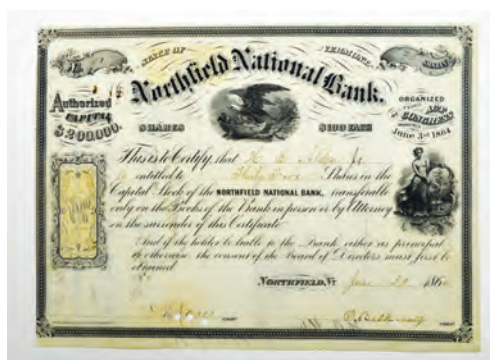 No.
STATE OF VERMONT.
SHARES
Northfield National Bank.
Authorized
CAPITAL
$200,000.
ORGANIZED
UNDER ACT
OF
CONGRESS
June 3rd 1864
SHARES
$100 EACH
This is to Certify, that
is entitled to Shares in the
Capital Stock of the NORTHFIELD NATIONAL BANK, transferable
only on the Books of the Bank in person or by Attorney
on the surrender of this Certificate.
And if the holder be liable to the Bank either as principal
or otherwise the consent of the Board of Directors must first be
obtained
NORTHFIELD, Vt June 186